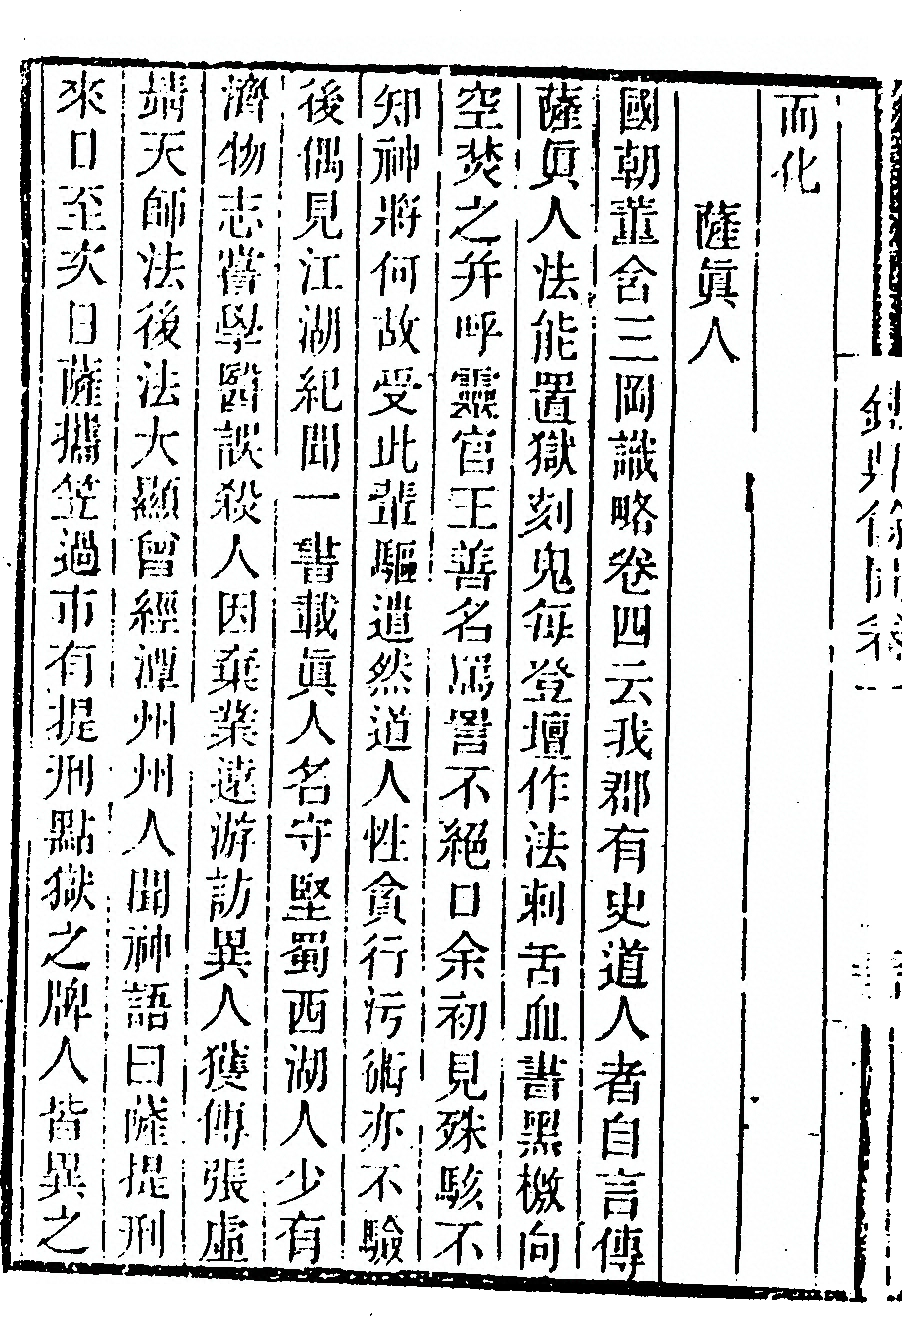 而化
薩眞人
國朝董含三岡識略卷四云我郡有史道人者自言傳
薩眞人法能置獄刻鬼每登壇作法刺舌血書黑檄向
空焚之并呼靈官王善名罵詈不絕口余初見殊駭不
知神將何故受此輩驅遣然道人性貪行污術亦不驗
後偶見江湖紀聞一書載眞人名守堅蜀西湖人少有
濟物志嘗學醫誤殺人因棄業遠游訪異人獲傳張虛
靖天師法後法大顯曾經潭州州人聞神語曰薩提刑
來日至次日薩攜笠過市有提刑點獄之牌人皆異之